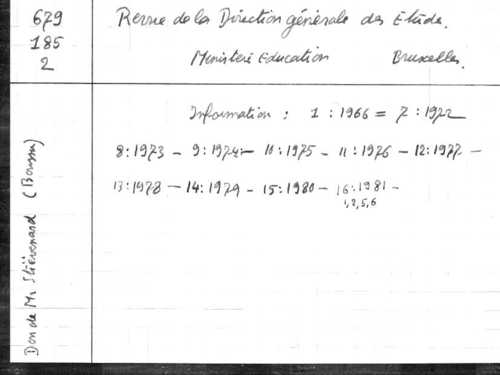 679
185
2
Revue de la Direction générale des Etude.
Ministère Education Bruxelles.
Information : 1 : 1966 = 7 : 1972
8 : 1973 - 9 : 1974 - 10 : 1975 - 11 : 1976 - 12 : 1977 -
13 : 1978 - 14 : 1979 - 15 : 1980 - 16 : 1981 -
1, 2, 5, 6
Don de M.